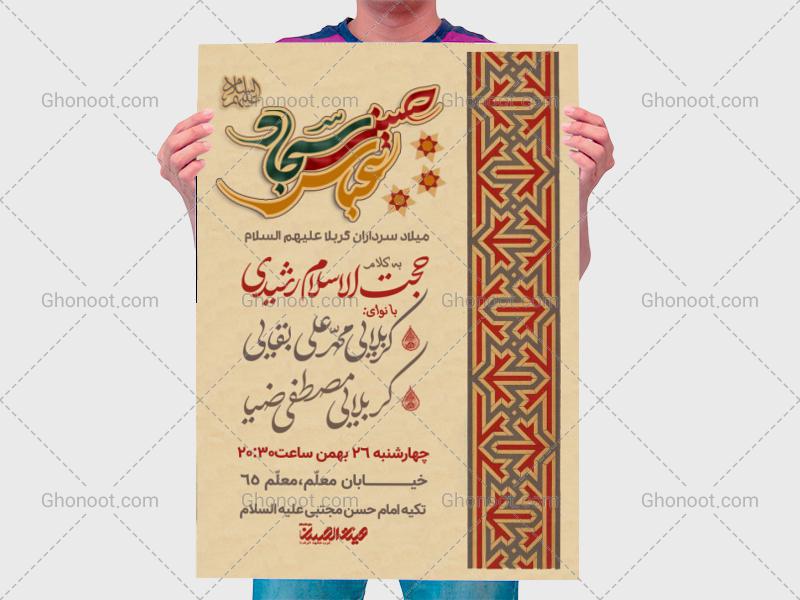 علیهم السلام
حسین
سجاد
عباس
میلاد سرداران کربلا علیهم السلام
به کلام
حجت الاسلام رشیدی
با نوای:
کربلایی محمد علی بقایی
کربلایی مصطفی ضیا
چهارشنبه ۲٦ بهمن ساعت۲۰:۳۰
خیـــابان معلّم،معلّم ٦٥
تکیه امام حسن مجتبی علیه السلام
Ghonoot.com Ghonoot.com Ghonoot.com Ghonoot.com
Ghonoot.com Ghonoot.com Ghonoot.com Ghonoot.com
Ghonoot.com Ghonoot.com Ghonoot.com Ghonoot.com